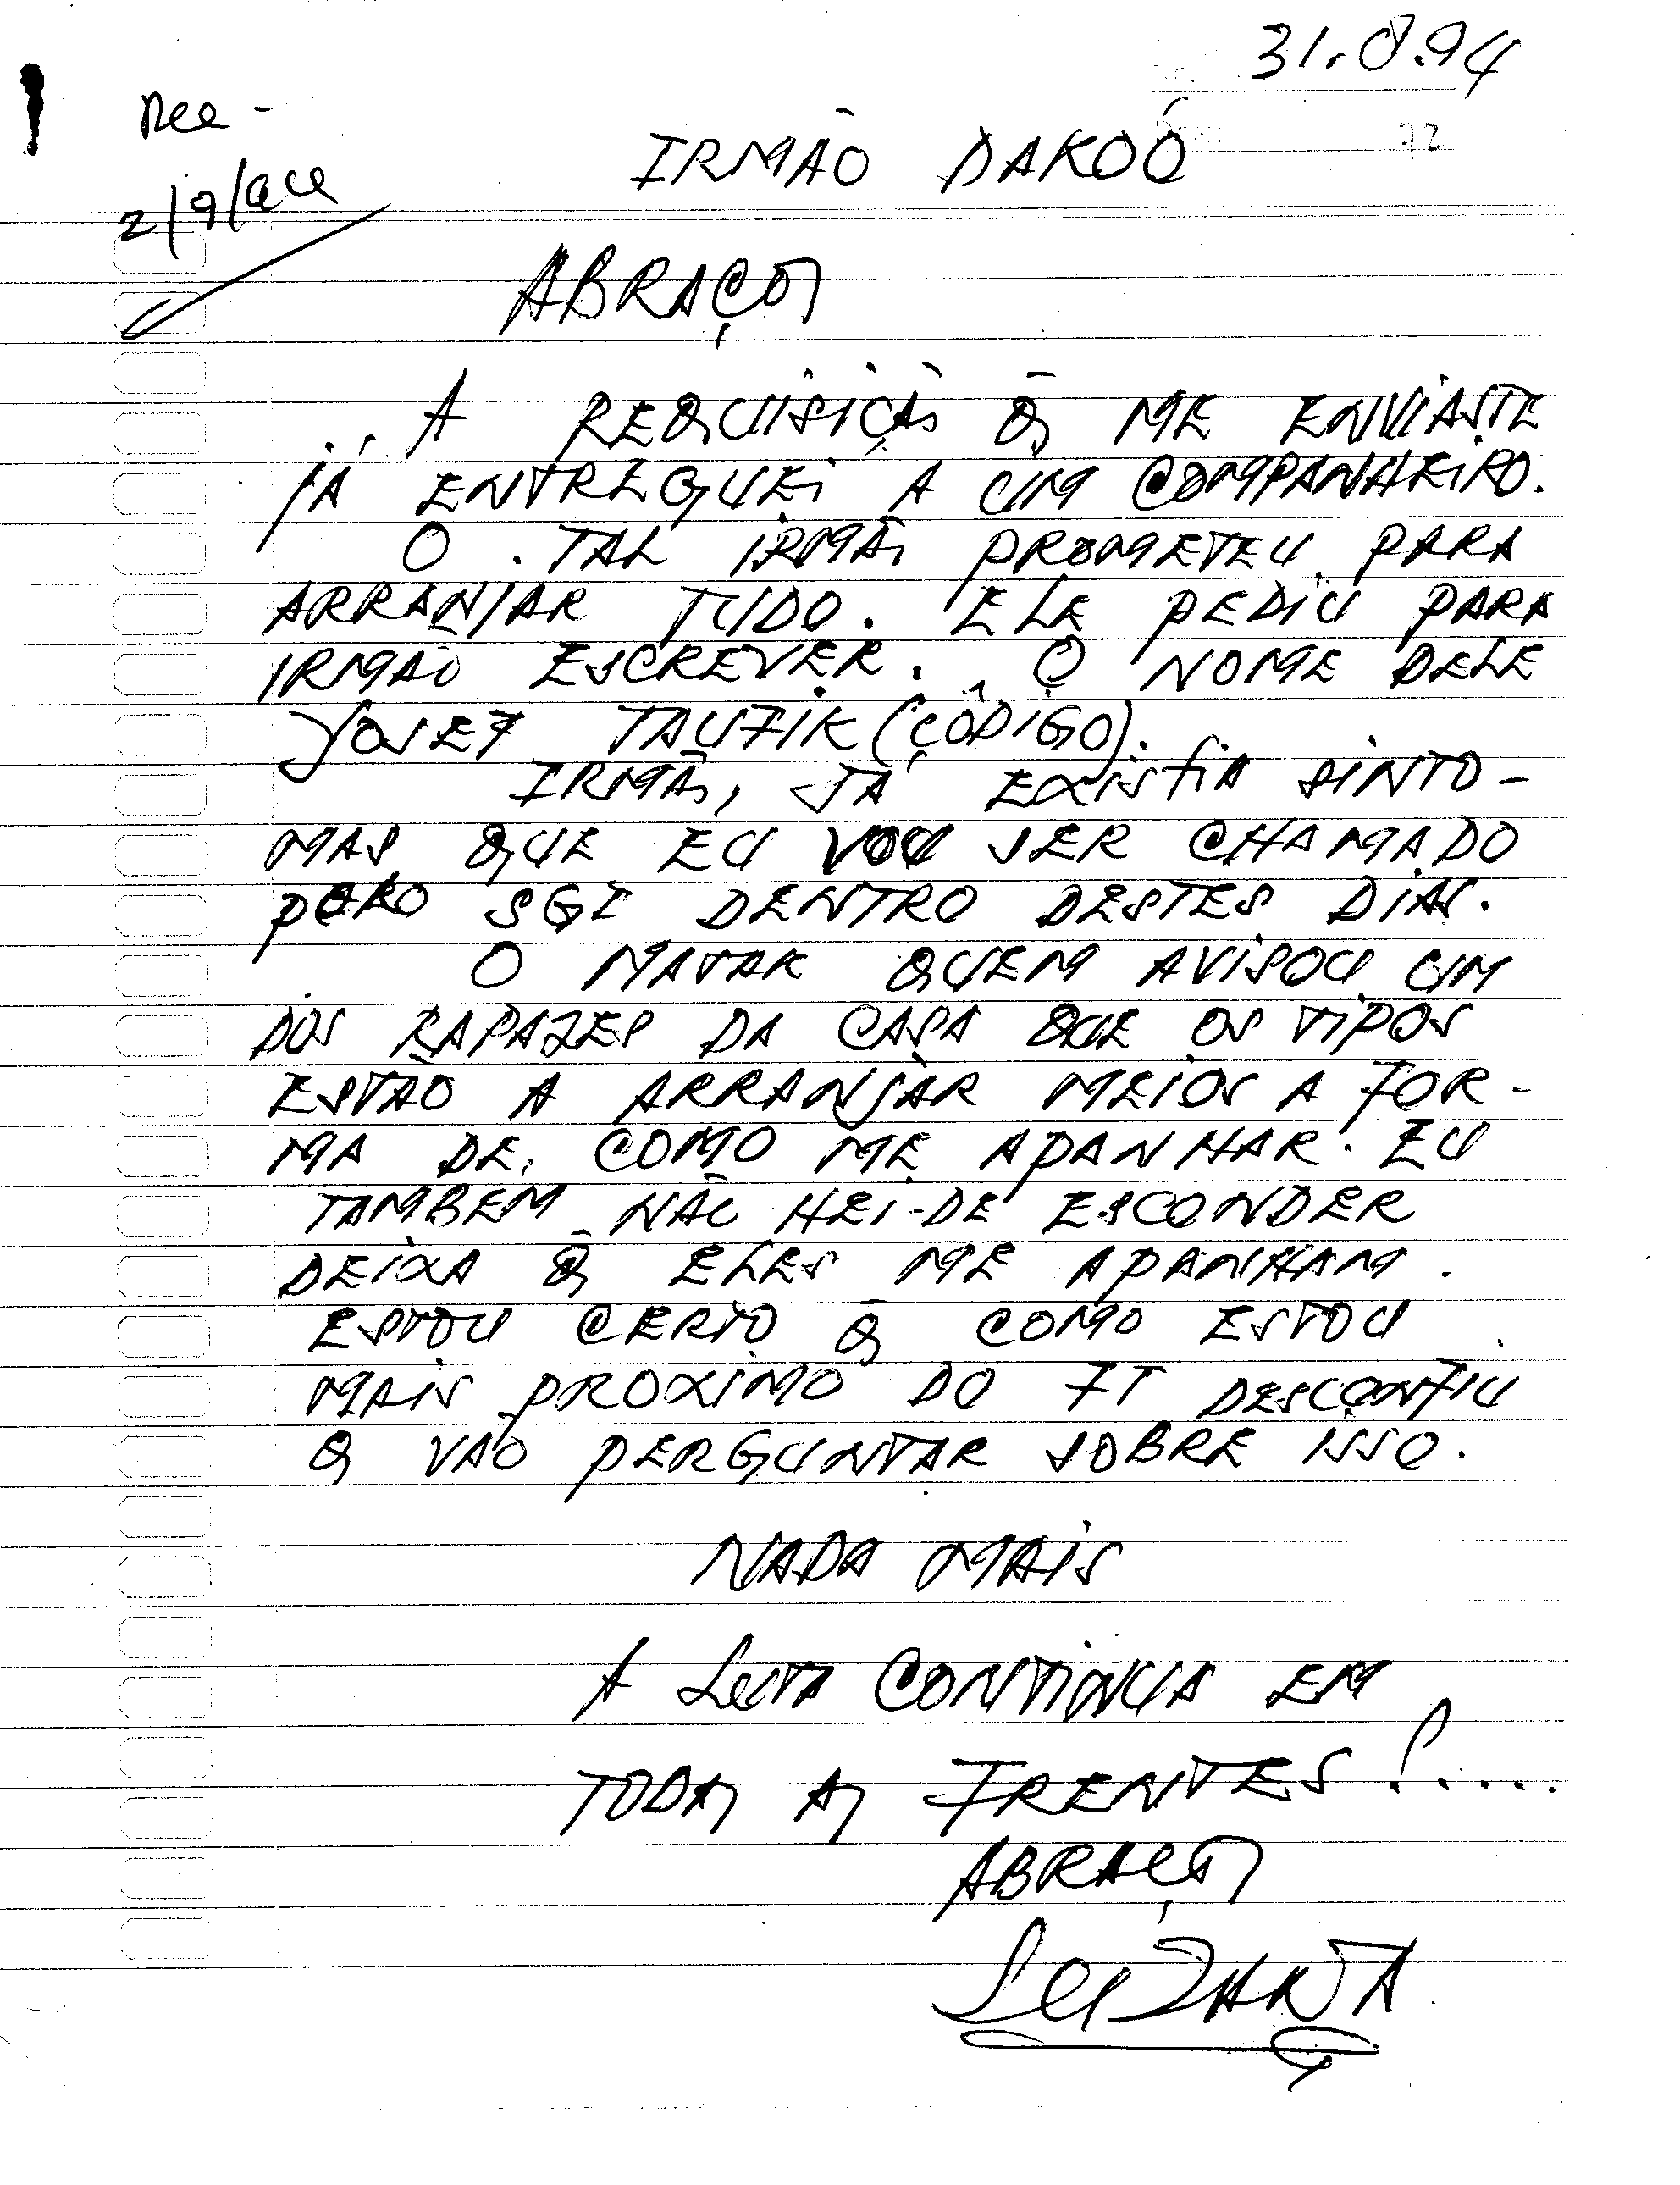 31.8.94
Rec -
IRMÃO DAKOÓ
2/9/
ABRAÇOS
A REQUISIÇÃO Q̃ ME ENVIASTE
JÁ ENTREGUEI A UM COMPANHEIRO.
O TAL IRMÃO PROMETEU PARA
ARRANJAR TUDO. ELE PEDIU PARA
IRMAO ESCREVER. O NOME DELE
JOSEF TAUFIK (CÓDIGO).
IRMÃO, JÁ EXISTIA SINTO-
MAS QUE EU VOU SER CHAMADO
PORO SGI DENTRO DESTES DIAS.
O MATAK QUEM AVISOU UM
DOS RAPAZES DA CASA QUE OS TIPOS
ESTÃO A ARRANJAR MEIOS A FOR-
MA DE COMO ME APANHAR. EU
TAMBEM NÃO HEI-DE ESCONDER
DEIXA Q̃ ELES ME APANHAM.
ESTOU CERTO Q̃ COMO ESTOU
MAIS PROXIMO DO FT DESCONFIU
Q VÃO PERGUNTAR SOBRE ISSO.
NADA MAIS
A LUTA CONTINUA EM
TODAS AS FRENTES!....
ABRAÇOS